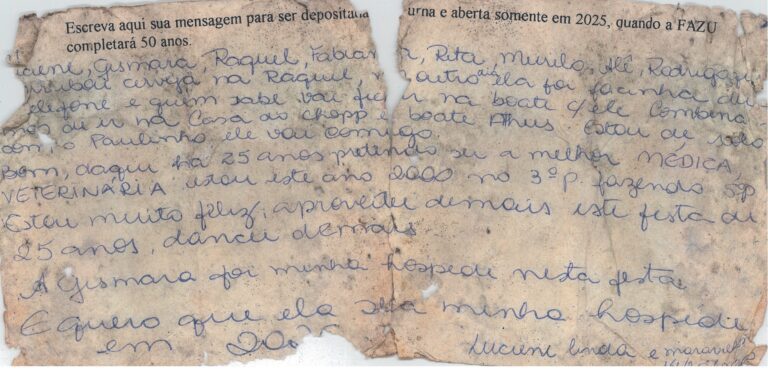 Escreva aqui sua mensagem para ser depositada urna e aberta somente em 2025, quando a FAZU
completará 50 anos.
Gismara, Raquel, Fabian Rita, Murilo, Alê, Rodrigo
cerveja na Raquel, outro ela foi facinha du
telefone e quem sabe vai ficar na boate c/ ele Combina
mos de ir na Casa do Chopp e boate Athus. Estou de
com o Paulinho ele vai comigo.
Bom, daqui há 25 anos pretendo ser a melhor MÉDICA
VETERINÁRIA estou este ano 2000 no 3º p. fazendo 5ºp
Estou muito feliz, aproveitei demais este festa de
25 anos, dancei demais
A Gismara foi minha hospede nesta festa
E quero que ela seja minha hospede
em
Luciene linda e